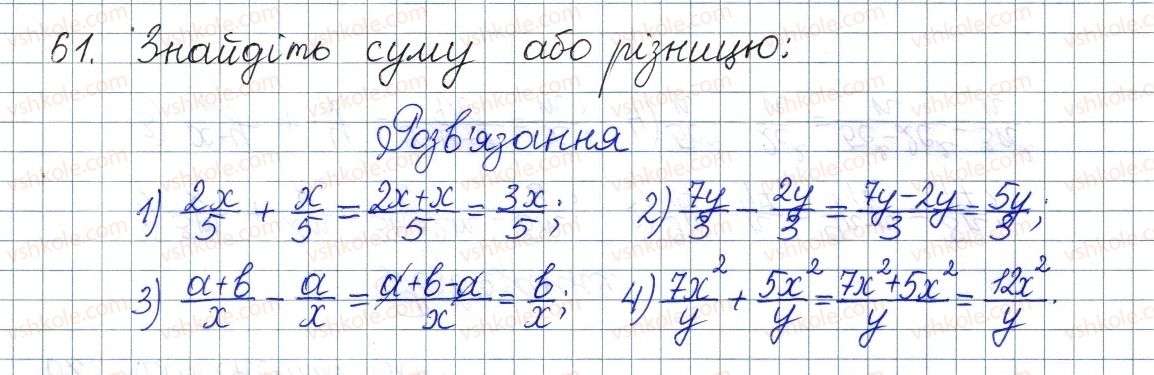 61. Знайдіть суму або різницю:
Розв'язання
1) 2x/5 + x/5 = 2x+x/5 = 3x/5; 2) 7y/3 − 2y/3 = 7y−2y/3 = 5y/3;
3) a+b/x − a/x = a+b−a/x = b/x; 4) 7x²/y + 5x²/y = 7x²+5x²/y = 12x²/y.
vshkole.com